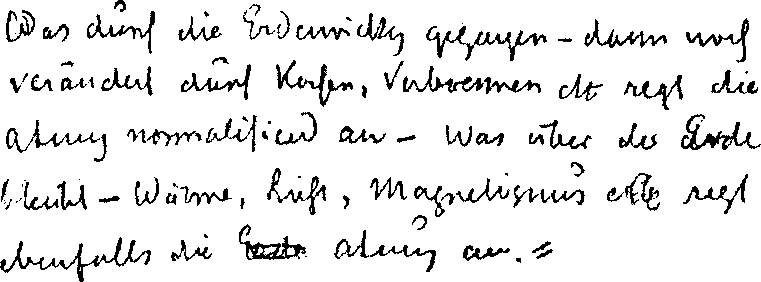 Was durch die Erdenrichtg gegangen – dann noch
verändert durch Kochen, Verbrennen etc regt die
Atmung normalisierend an – Was über der Erde
bleibt – Wärme, Luft, Magnetismus etc regt
ebenfalls die Atmung an. =